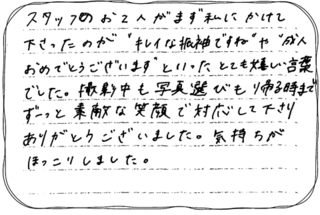 スタッフのお2人がまず私にかけて
下さったのが"キレイな振袖ですね"や"成人
おめでとうございます"といった、とても嬉しい言葉
でした。撮影中も写真選びも帰る時まで
ずーっと素敵な笑顔で対応して下さり
ありがとうございました。気持ちが
ほっこりしました。